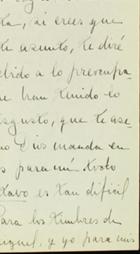 ta, si crees que
te asunto, te diré
bido a lo preocupa
me han tenido lo
isgusto, que te ase
no Dios manda en
s para mí todo
tavo es tan difícil
Para los timbres de
iguel, y yo para mis